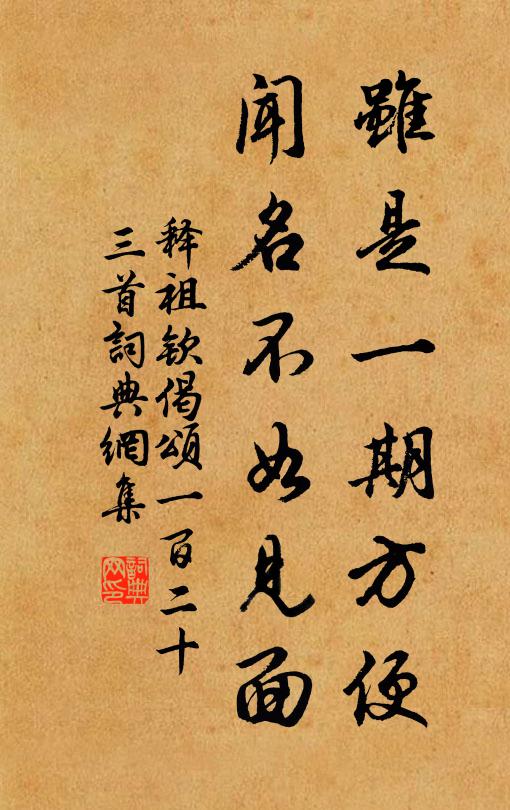 雖是一期方便
聞名不如見面
释祖欽偈頌一百二十
三首詞典網集
詞典
网印